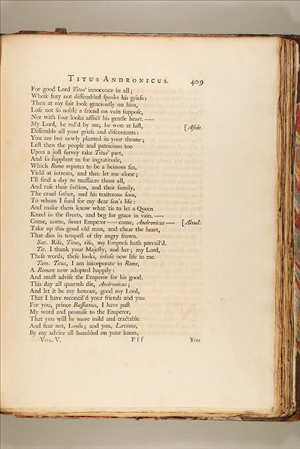 TITUS ANDRONICUS. 409
For good Lord Titus' innocence in all;
Whose fury not dissembled speaks his griefs:
Then at my suit look graciously on him,
Lose not so noble a friend on vain suppose,
Nor with sour looks afflict his gentle heart. —
My Lord, be rul'd by me, be won at last,
Dissemble all your griefs and discontents: [Aside.
You are but newly planted in your throne;
Lest then the people and patricians too
Upon a just survey take Titus' part,
And so supplant us for ingratitude,
Which Rome reputes to be a heinous sin,
Yield at intreats, and then let me alone;
I'll find a day to massacre them all,
And rase their faction, and their family,
The cruel father, and his traiterous sons,
To whom I sued for my dear son's life:
And make them know what 'tis to let a Queen
Kneel in the streets, and beg for grace in vain. —
Come, come, sweet Emperor — come, Andronicus — [Aloud.
Take up this good old man, and chear the heart,
That dies in tempest of thy angry frown.
Sat. Rise, Titus, rise, my Empress hath prevail'd.
Tit. I thank your Majesty, and her; my Lord,
These words, these looks, infuse new life in me.
Tam. Titus, I am incorporate in Rome,
A Roman now adopted happily:
And must advise the Emperor for his good.
This day all quarrels die, Andronicus;
And let it be my honour, good my Lord,
That I have reconcil'd your friends and you.
For you, prince Bassianus, I have past
My word and promise to the Emperor,
That you will be more mild and tractable.
And fear not, Lords; and you, Lavinia,
By my advice all humbled on your knees,
VOL. V. Fff You